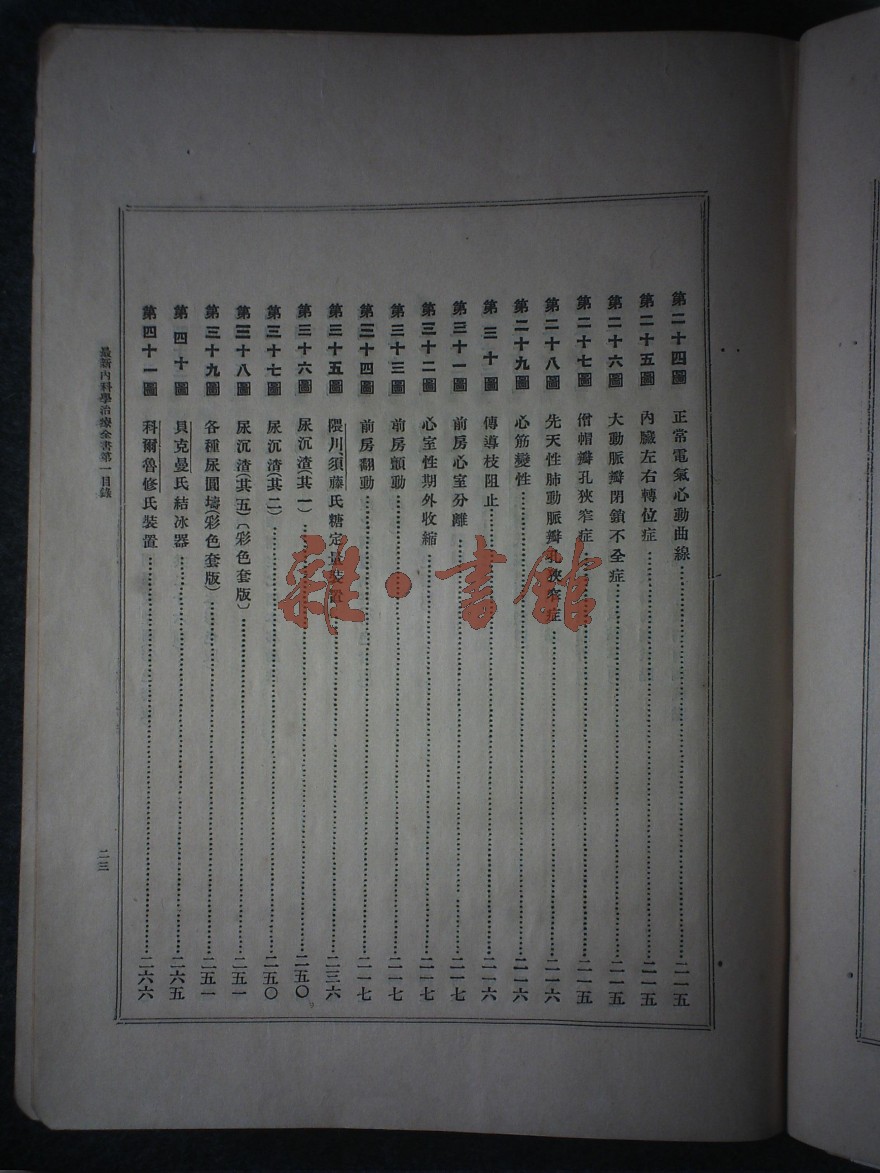 第二十四圖 正常電氣心動曲線……二一五
第二十五圖 內臟左右轉位症……二一五
第二十六圖 大動脈瓣閉鎖不全症……二一五
第二十七圖 僧帽瓣孔狹窄症……二一五
第二十八圖 先天性肺動脈瓣孔狹窄症……二一六
第二十九圖 心筋變性……二一六
第三十圖 傳導枝阻止……二一六
第三十一圖 前房心室分離……二一七
第三十二圖 心室性期外收縮……二一七
第三十三圖 前房顫動……二一七
第三十四圖 前房翻動……二一七
第三十五圖 隈川、須藤氏糖定量裝置……二三六
第三十六圖 尿沉渣(其一)……二五〇
第三十七圖 尿沉渣(其二)……二五〇
第三十八圖 尿沉渣(其五)(彩色套版)……二五一
第三十九圖 各種尿圓壔(彩色套版)……二五一
第四十圖 貝克曼氏結冰器……二六五
第四十一圖 科爾魯修氏裝置……二六六
最新內科學治療全書第一目錄
二三
雜·書館